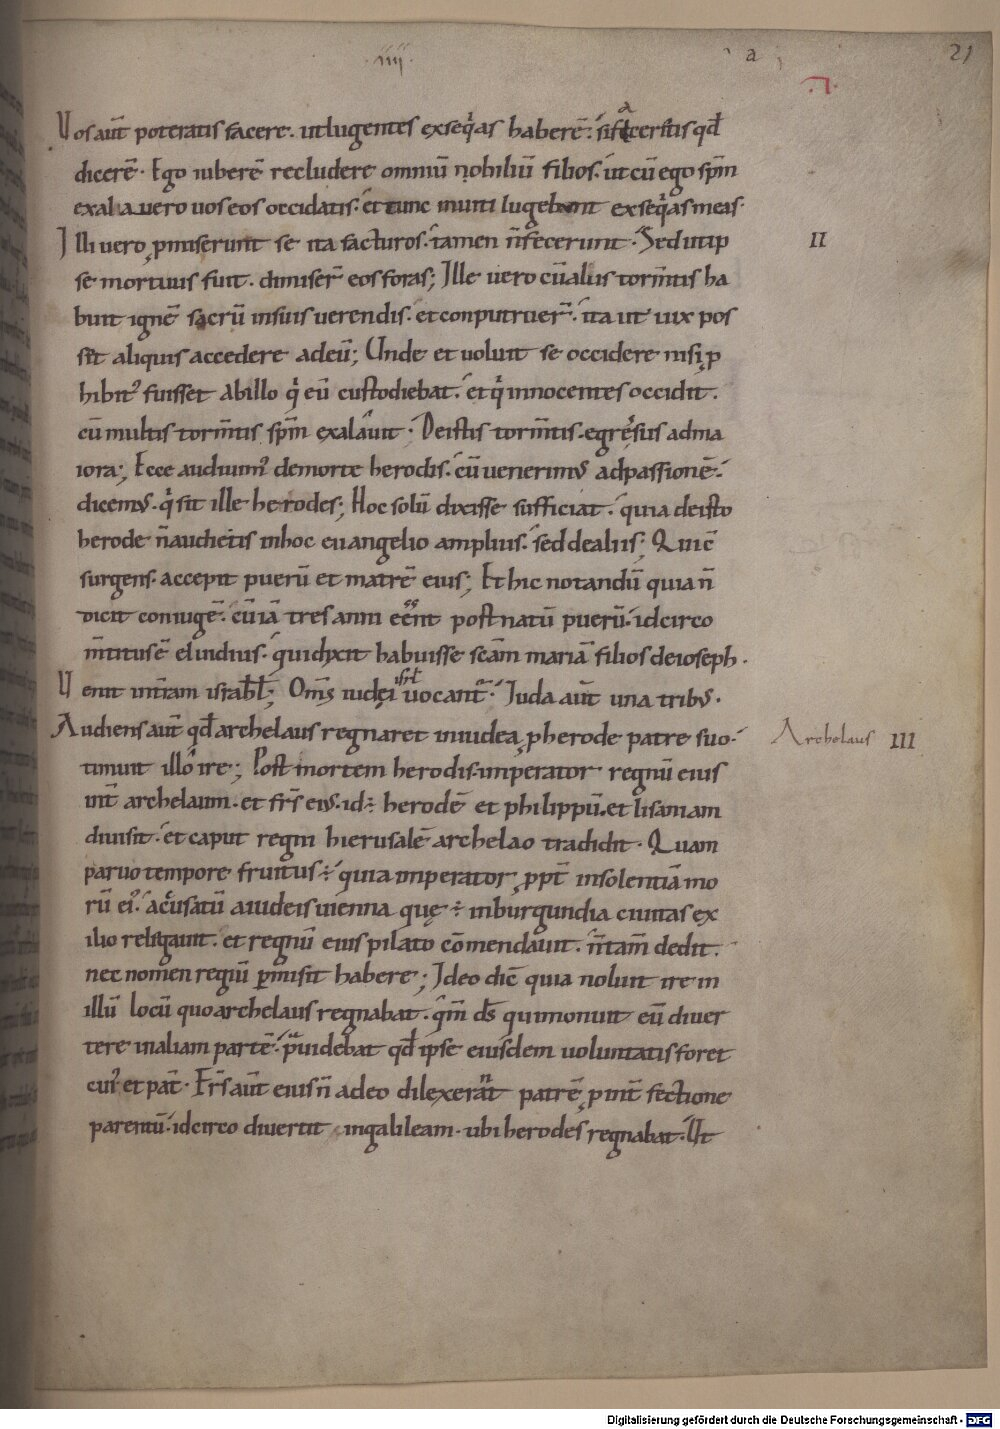 .iiii. a 21
Vos aut̄ poteratis facere. ut lugentes exseq̇as haberē. si feceritis qđ
dicerē. Ego iuberē recludere omniū nobiliū filios. ut cū ego sp̄m
exalauero uos eos occidatis. et tunc inuiti lugebunt exseq̇as meas.
Illi vero p̱miserunt se ita facturos. tamen n̄ fecerunt. Sed ut ip II
se mortuus fuit. dimiser̄ eos foras; Ille vero cū aliis torm̄tis ha
buit ignē sacrū in suis uerendis. et conputruer̄. ita ut uix pos
sit aliquis accedere ad eū; Unde et uoluit se occidere nisi p̱
hibit᾿ fuisset Abillo q̇ eū custodiebat. et q̇ innocentes occidit.
cū multis torm̄tis sp̄m exalauit. De istis torm̄tis. egressus ad ma
iora; Ecce audiuim᾿ de morte herodis. cū uenerim᾿ ad passionē.
dicem᾿. q̇ sit ille herodes; Hoc solū dixisse sufficiat. quia de isto
herode n̄ audietis in hoc euangelio amplius. sed de aliis; Qui c̄
surgens. accepit puerū et matrē eius; Et hic notandū quia n̄
dicit coniugē. cū iā tres anni eēnt post natū puerū. idcirco
m̄titus ē eluidius. qui dixit habuisse sc̄am mariā filios de ioseph.
Venit in t̄ram israhl̄; Om̄s iudei isrl̄ uocant᾿. Iuda aut̄ una trib᾿.
Audiens aut̄ qđ archelaus regnaret in iudea p̱ herode patre suo. Archelaus III
timuit illo ire; Post mortem herodis. imperator regnū eius
int̄ archelaum. et fr̄s ei᾿. id÷ herodē et philippū. et lisaniam
diuisit. et caput regni hierusalē archelao tradidit. Quam
paruo tempore fruitus ÷ quia imperator p̱pt̄ insolentiā mo
rū ei᾿. accusatū a iudeis uienna que ÷ in burgundia ciuitas ex
ilio religauit. et regnū eius pilato cōmendauit. n̄ tam̄ dedit.
nec nomen regiū p̱misit habere; Ideo dic̄ quia noluit ire in
illū locū quo archelaus regnabat. q̇m d̄s qui monuit eū diuer
tere in aliam partē. p̄uidebat qđ ipse eiusdem uoluntatis foret
cui᾿ et pat̄. Fr̄s aut̄ eius n̄ adeo dilexerant patrē p̱ int̄fectione
parentū. idcirco diuertit in galileam. ubi herodes regnabat. Ut
Digitalisierung gefördert durch die Deutsche Forschungsgemeinschaft - DFG